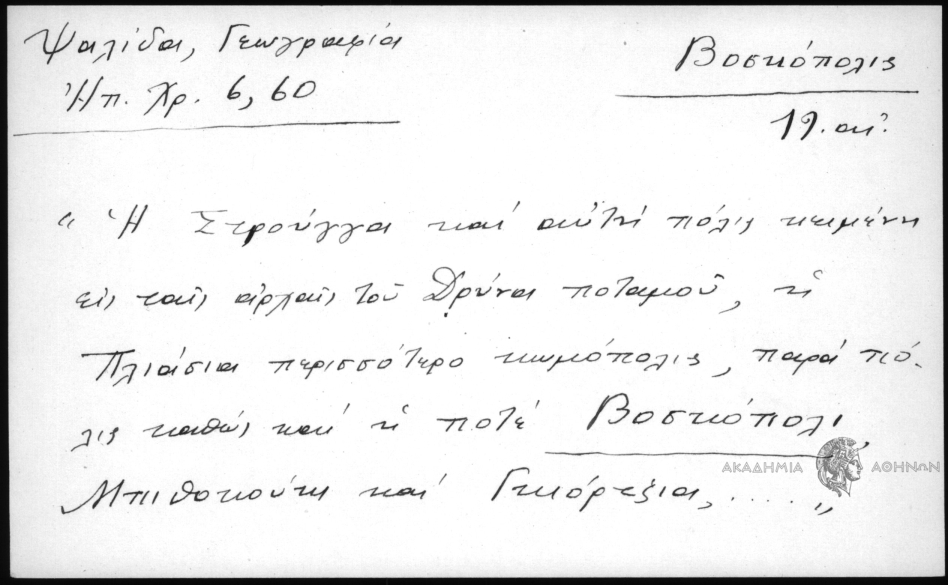 Ψαλίδα, Γεωγραφία
Ἠπ. Χρ. 6, 60
Βοσκόπολις
19. αἰ.
" Ἡ Στρούγγα καί αὐτή πόλις κειμένη
εἰς ταῖς ἀρχαῖς τοῦ Δρύνα ποταμοῦ, ἡ
Πλιάσια περισσότερο κωμόπολις, παρά πό-
λις καθώς καί ἡ ποτέ Βοσκόπολι,
Μπιθοκούκι καί Γκιόρτζια, .... „
ΑΚΑΔΗΜΙΑ ΑΘΗΝΩΝ